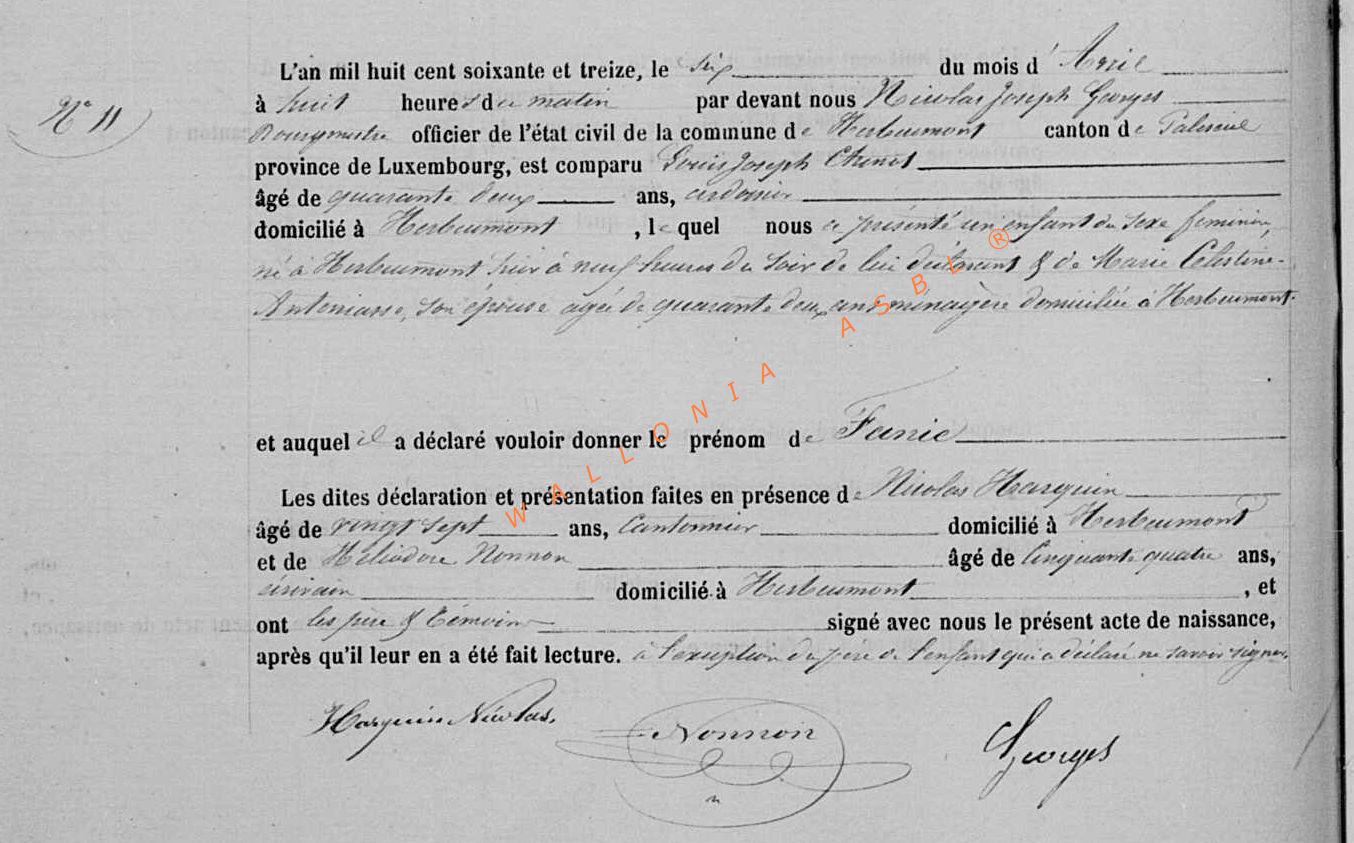 L'an mil huit cent soixante et treize, le six du mois d'Avril
N° 11
à huit heures du matin par devant nous Nicolas Joseph Georges
Bourgmestre officier de l'état civil de la commune de Herbeumont canton de Paliseul
province de Luxembourg, est comparu Louis Joseph
âgé de quarante deux ans, ardoisier
domicilié à Herbeumont, lequel nous a présenté un enfant du sexe feminin,
né à Herbeumont hier à neuf heures du soir de lui déclarant & de Marie Celestine
son épouse agée de quarante deux ans ménagère domiciliée à Herbeumont.
et auquel il a déclaré vouloir donner le prénom de Fanie
Les dites déclaration et présentation faites en présence de Nicolas Harquin
âgé de vingt sept ans, Cantonnier domicilié à Herbeumont
et de Héliodore Nonnon âgé de Cinquante quatre ans,
écrivain domicilié à Herbeumont, et
ont les père & témoins signé avec nous le présent acte de naissance,
après qu'il leur en a été fait lecture. à l'exception du père de l'enfant qui a déclaré ne savoir signer.
Harquin Nicolas.
Nonnon
Georges
WALLONIA ASBL ®